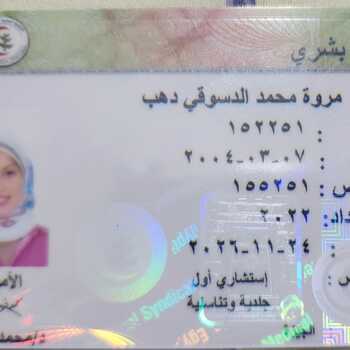 بشري
مروة محمد الدسوقي دهب
: ١٥٢٢٥١
: ٢٠٠٤-٠٣-٠٧
ص : ١٥٥٢٥١
داد: ٢٠٢٢
: ٢٠٢٦-١١-٢٤
ص : إستشاري أول
جلدية وتناسلية
الأم
الجيزة
د/محمد
Medical Syndicate